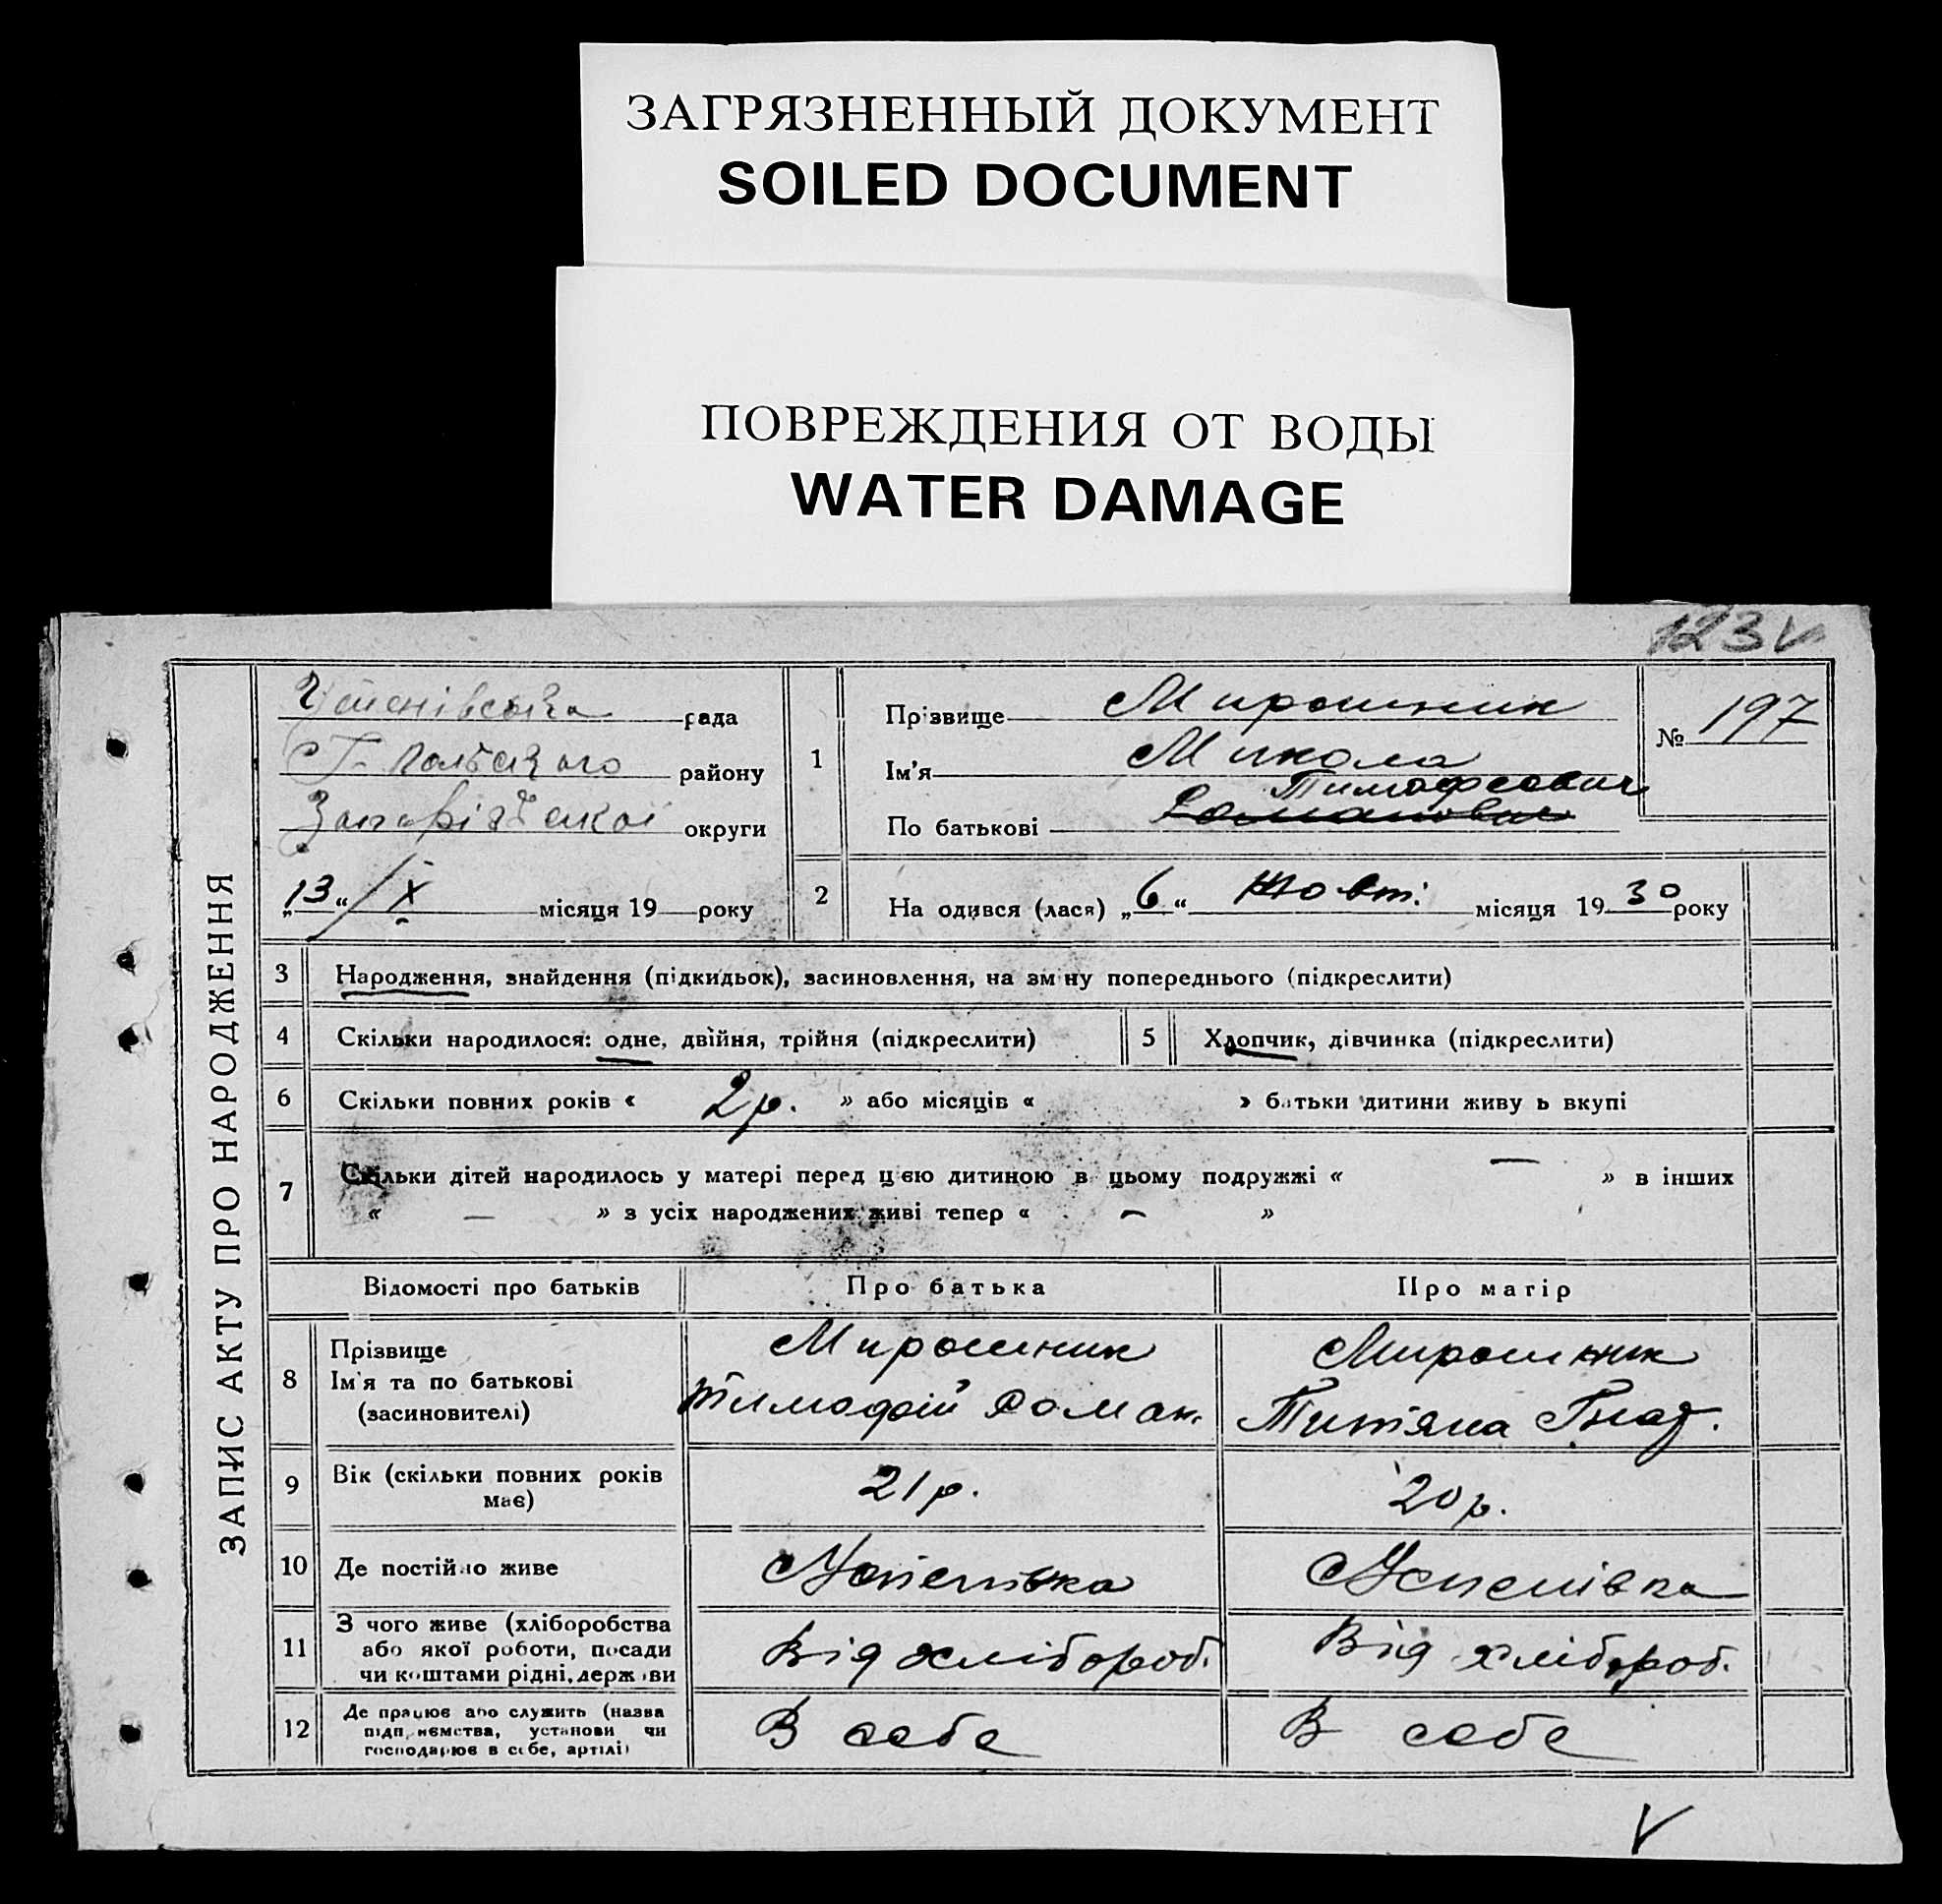 ЗАГРЯЗНЕННЫЙ ДОКУМЕНТ
SOILED DOCUMENT
ПОВРЕЖДЕНИЯ ОТ ВОДЫ
WATER DAMAGE
123 V
ЗАПИС АКТУ ПРО НАРОДЖЕННЯ
рада
району
округи
„13“ / X місяця 19 року
1
Прізвище Мирошник
Ім'я Микола
Тимофеович
По батькові Романович
№ 197
2
На одився (лася) „6“ Жовт. місяця 1930 року
3 Народження, знайдення (підкидьок), засиновлення, на зміну попереднього (підкреслити)
4 Скільки народилося: одне, двійня, трійня (підкреслити) 5 Хлопчик, дівчинка (підкреслити)
6 Скільки повних років « 2 р. » або місяців « » батьки дитини живу ь вкупі
7 Скільки дітей народилось у матері перед цією дитиною в цьому подружжі « — » в інших
« — » з усіх народжених живі тепер « — »
Відомості про батьків Про батька Про матір
8 Прізвище
Ім'я та по батькові
(засиновителі)
Мирошник
Тимофій Роман.
Мирошник
Титяна Гнат.
9 Вік (скільки повних років
має)
21 р. 20 р.
10 Де постійно живе Успенівка Успенівка
11 З чого живе (хліборобства
або якої роботи, посади
чи коштами рідні, держ ви
Від хлібороб. Від хлібороб.
12 Де працює або служить (назва
підприємства, установи чи
господарює в себе, артілі)
В себе В себе
V